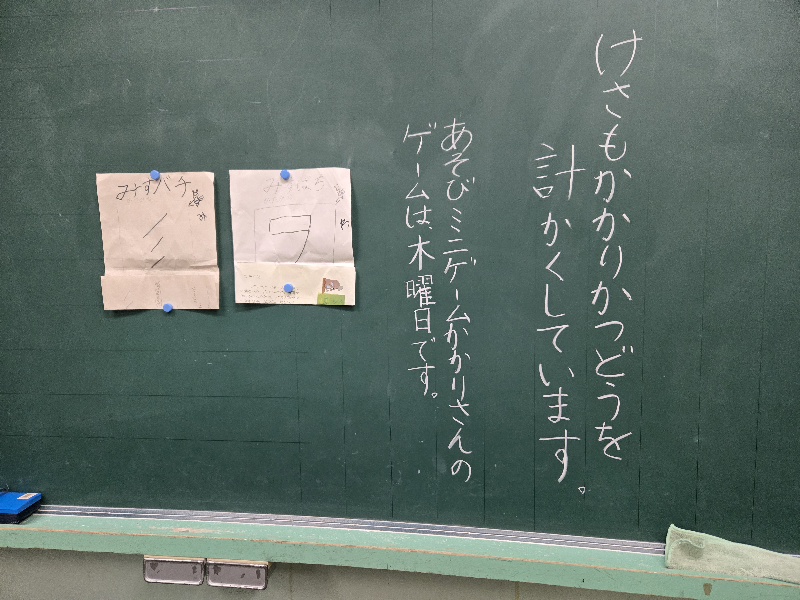 けさもかかりかつどうを
計かくしています。
あそびミニゲームかかりさんの
ゲームは、木曜日です。
みすバチ